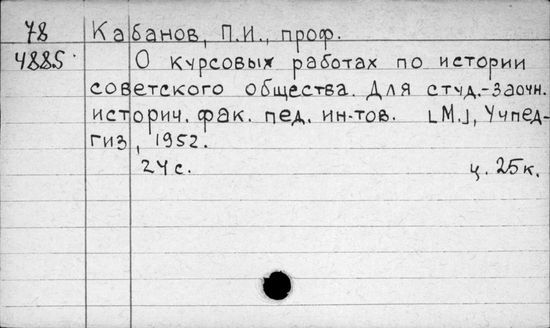 78 Кабанов, П.И., проф.
4885 О курсовых работах по истории
советского общества. Для студ.-заочн.
историч. фак. пед. ин-тов. [М.], Учпед-
гиз, 1952.
24 с. ц. 25к.